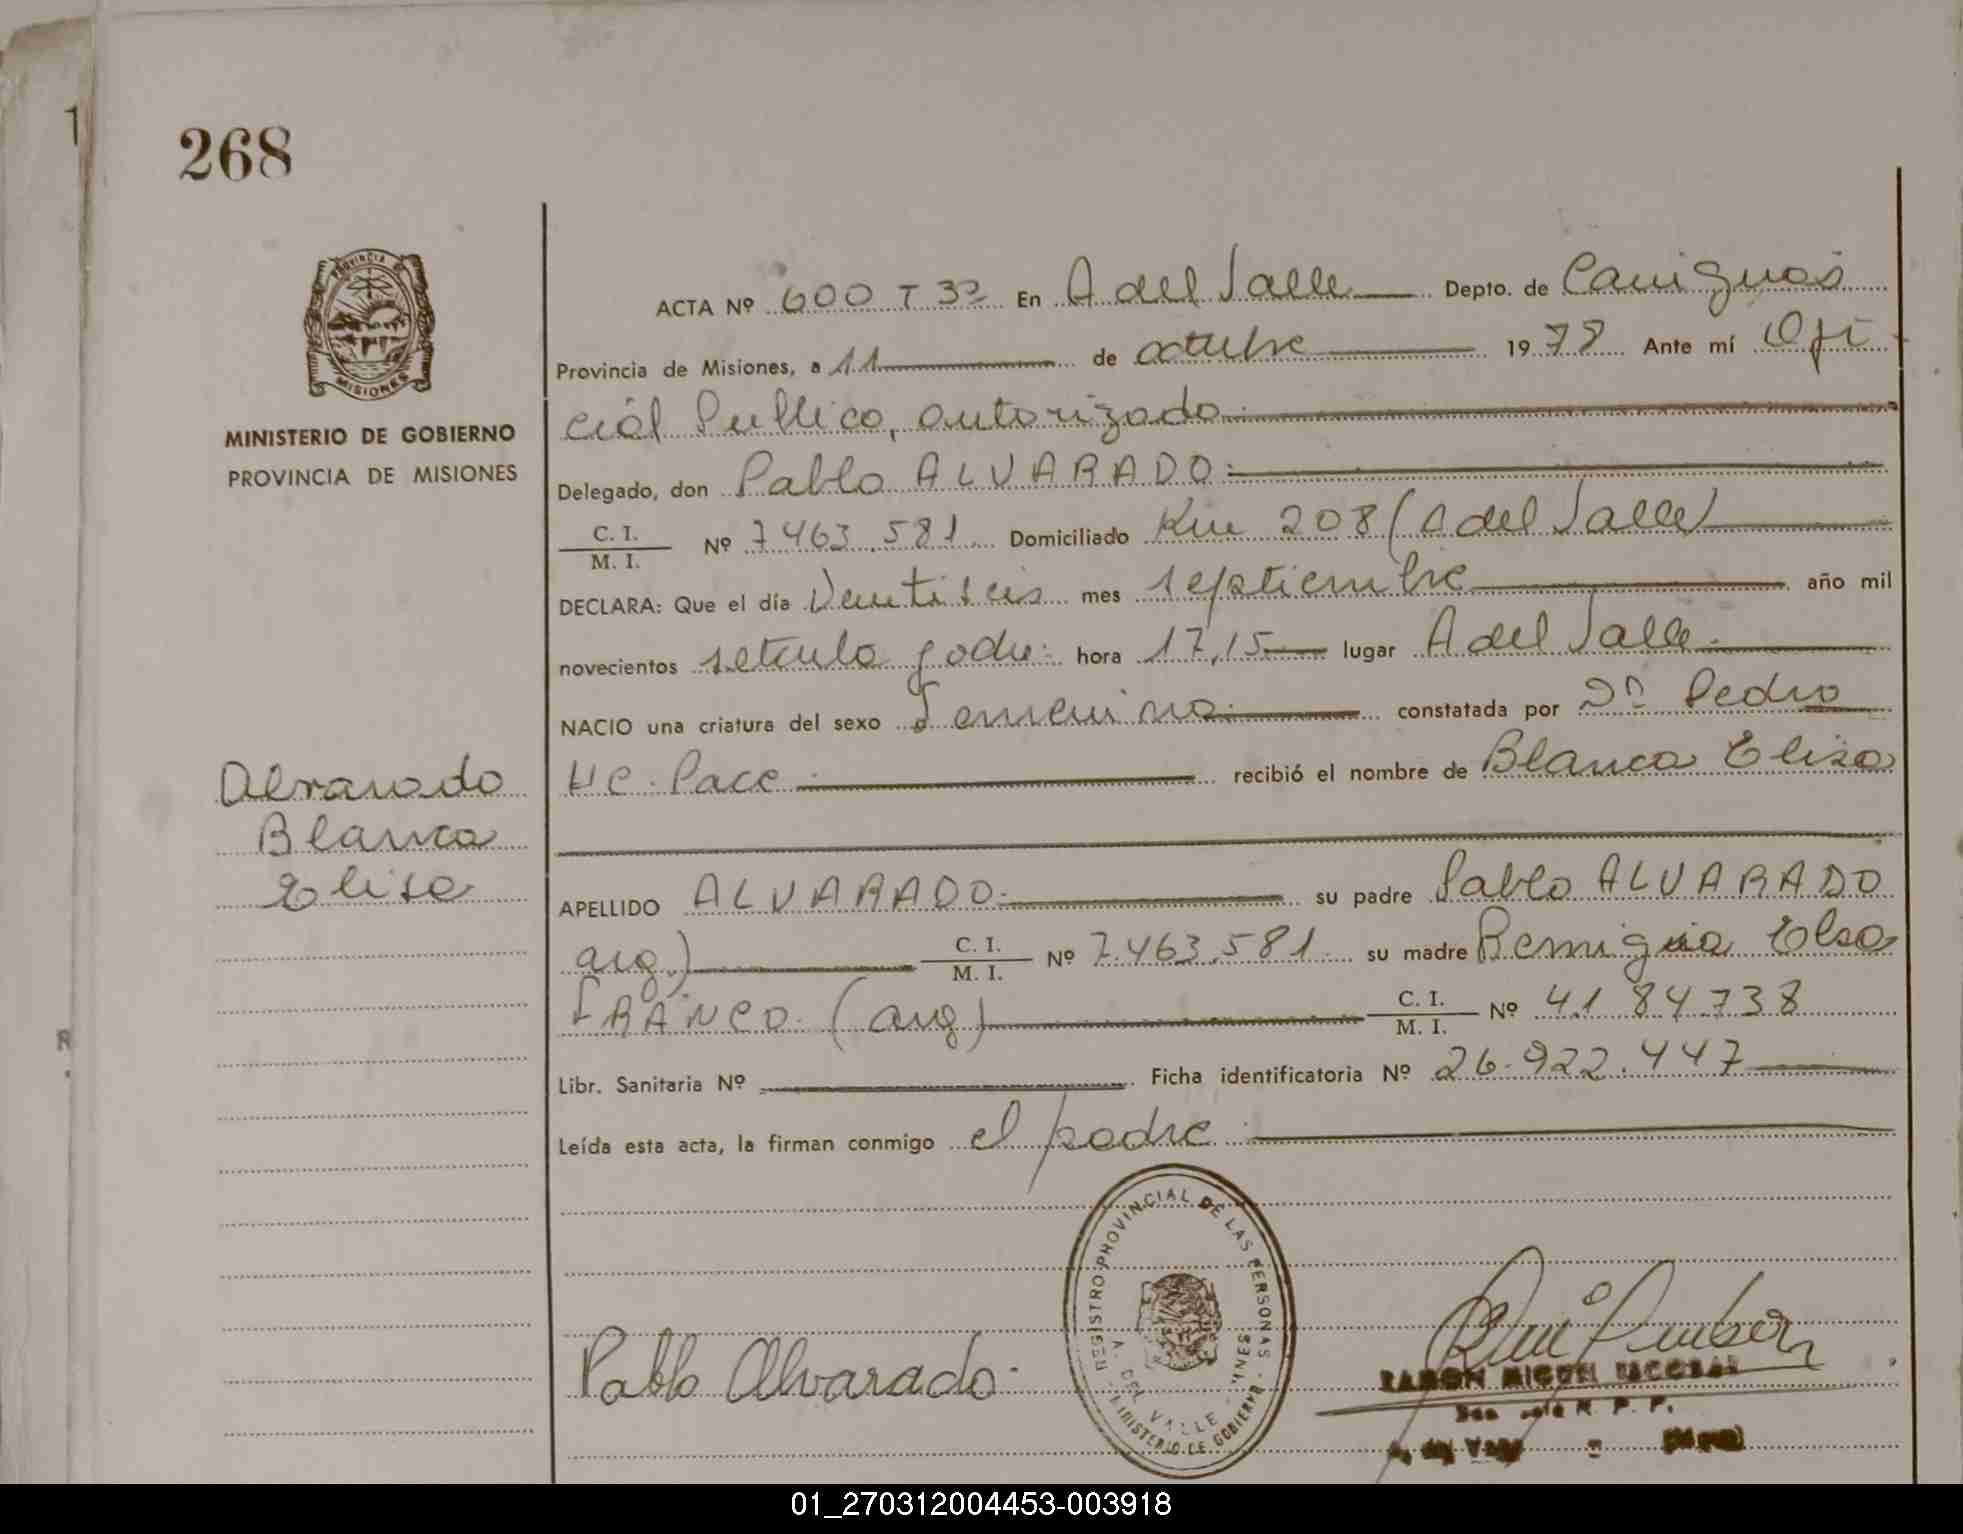 268
PROVINCIA DE
MISIONES
MINISTERIO DE GOBIERNO
PROVINCIA DE MISIONES
ACTA Nº 600 T 3º En A del Valle Depto. de Cainguás
Provincia de Misiones, a 11 de octubre 1978 Ante mí Ofi
cial Publico, autorizado
Delegado, don Pablo ALVARADO
C. I.
M. I. Nº 7463.581 Domiciliado Km 208 (A del Valle)
DECLARA: Que el día Veintiseis mes septiembre año mil
novecientos setenta y ocho hora 17,15 lugar A del Valle
NACIO una criatura del sexo Femenino constatada por Dn Pedro
Pace recibió el nombre de Blanca Elisa
Alvarado
Blanca
Elisa
APELLIDO ALVARADO su padre Pablo ALVARADO
arg.) C. I.
M. I. Nº 7.463.581 su madre Remigia Elsa
FRANCO (arg) C. I.
M. I. Nº 4.184.738
Libr. Sanitaria Nº Ficha identificatoria Nº 26.922.447
Leída esta acta, la firman conmigo el padre
REGISTRO PROVINCIAL DE LAS PERSONAS
A. DEL VALLE
MINISTERIO DE GOBIERNO
Pablo Alvarado
RAMON MIGUEL ESCOBAR
R. P. P.
A. del Valle
01_270312004453-003918